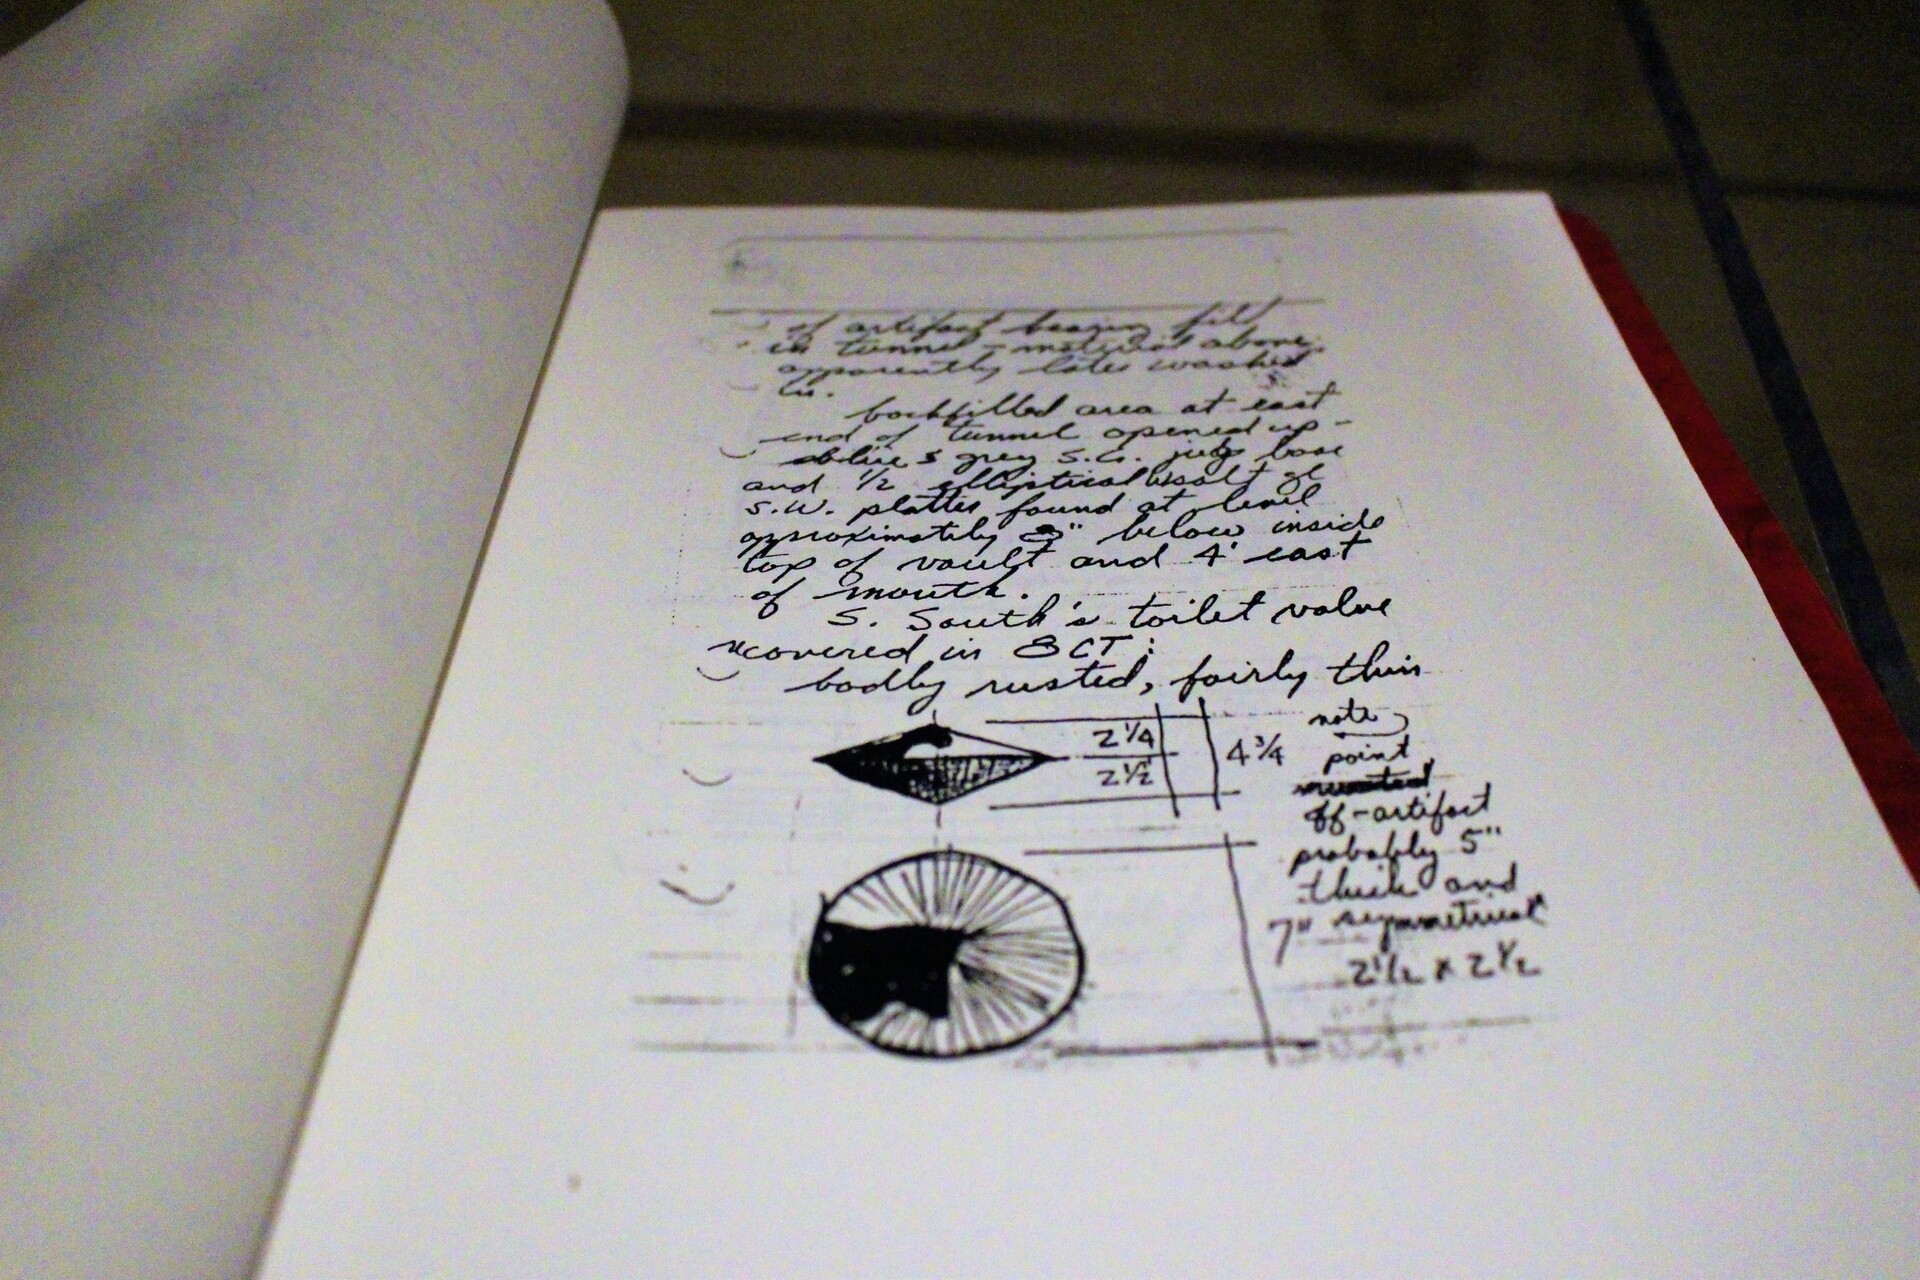 of artifact bearing fill
in tunnel - material above
apparently later washed
in.
backfilled area at east
end of tunnel opened up -
blue & grey S.G. jug base
and 1/2 elliptical salt gl
S.W. platter found at level
approximately 8" below inside
top of vault and 4' east
of mouth.
S. South's toilet valve
recovered in 8CT:
badly rusted, fairly thin
2 1/4
2 1/2
4 3/4
note
point
off - artifact
probably 5"
thick and
7" symmetrical
2 1/2 x 2 1/2